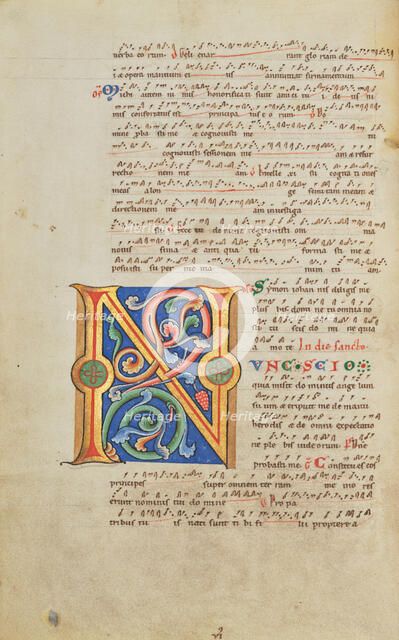 verba eorum. Celi enar rant gloriam de
i & opera manuum ei us annuntiat firmamentum
Michi autem nimis honorificati sunt amici tui deus ni
mis confortatus est principa tus eorum Do
mine probasti me & cognovisti me tu
cognovisti sessionem me am & resur
rectio nem me am Intellexisti cogitationes
meas a lon ge semitam meam &
directionem me am investiga
sti
notus sunt a & antiqua tu formasti me &
posuisti super me ma num tu am
Symon iohannis diligis me
plus his domine tu omnia no
sti tu scis domine quia
amo te In die sancto
NUNC SCIO
quia misit dominus angelum
suum & eripuit me de manu
herodis & de omni expectatio
ne plebis iudeorum
probasti me Constitues eos
principes super omnem terram memores
erunt nominis tui domine Pro pa
tribus tu is nati sunt tibi fi lii propterea
VI
Heritage
Heritage
Heritage
Heritage